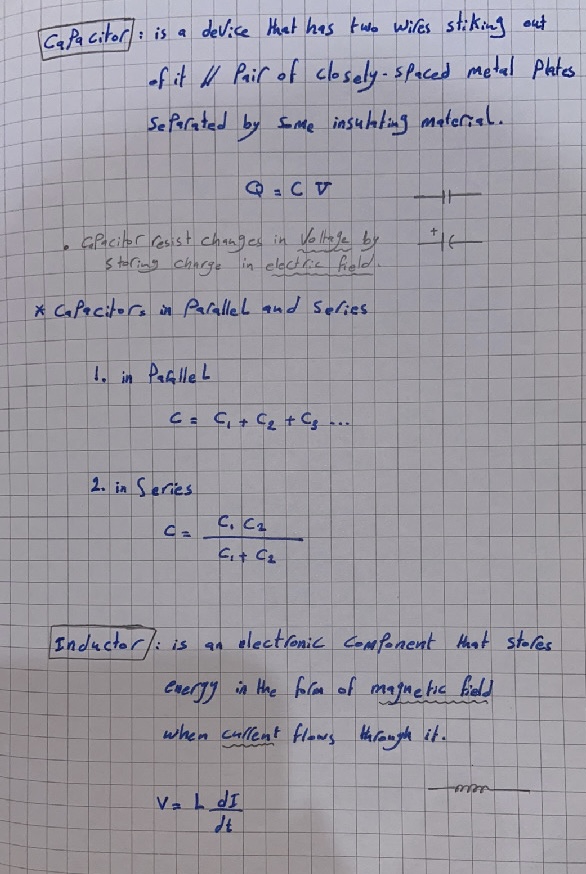 Capacitor : is a device that has two wires stiking out
of it // Pair of closely-spaced metal plates
separated by some insulating material.
Q = C V
• Capacitor resist changes in Voltage by
storing charge in electric field.
+
* Capacitors in Parallel and Series
1. in Parallel
C = C₁ + C₂ + C₃ ...
2. in Series
C = C₁ C₂ / C₁ + C₂
Inductor : is an electronic component that stores
energy in the form of magnetic field
when current flows through it.
V = L dI / dt